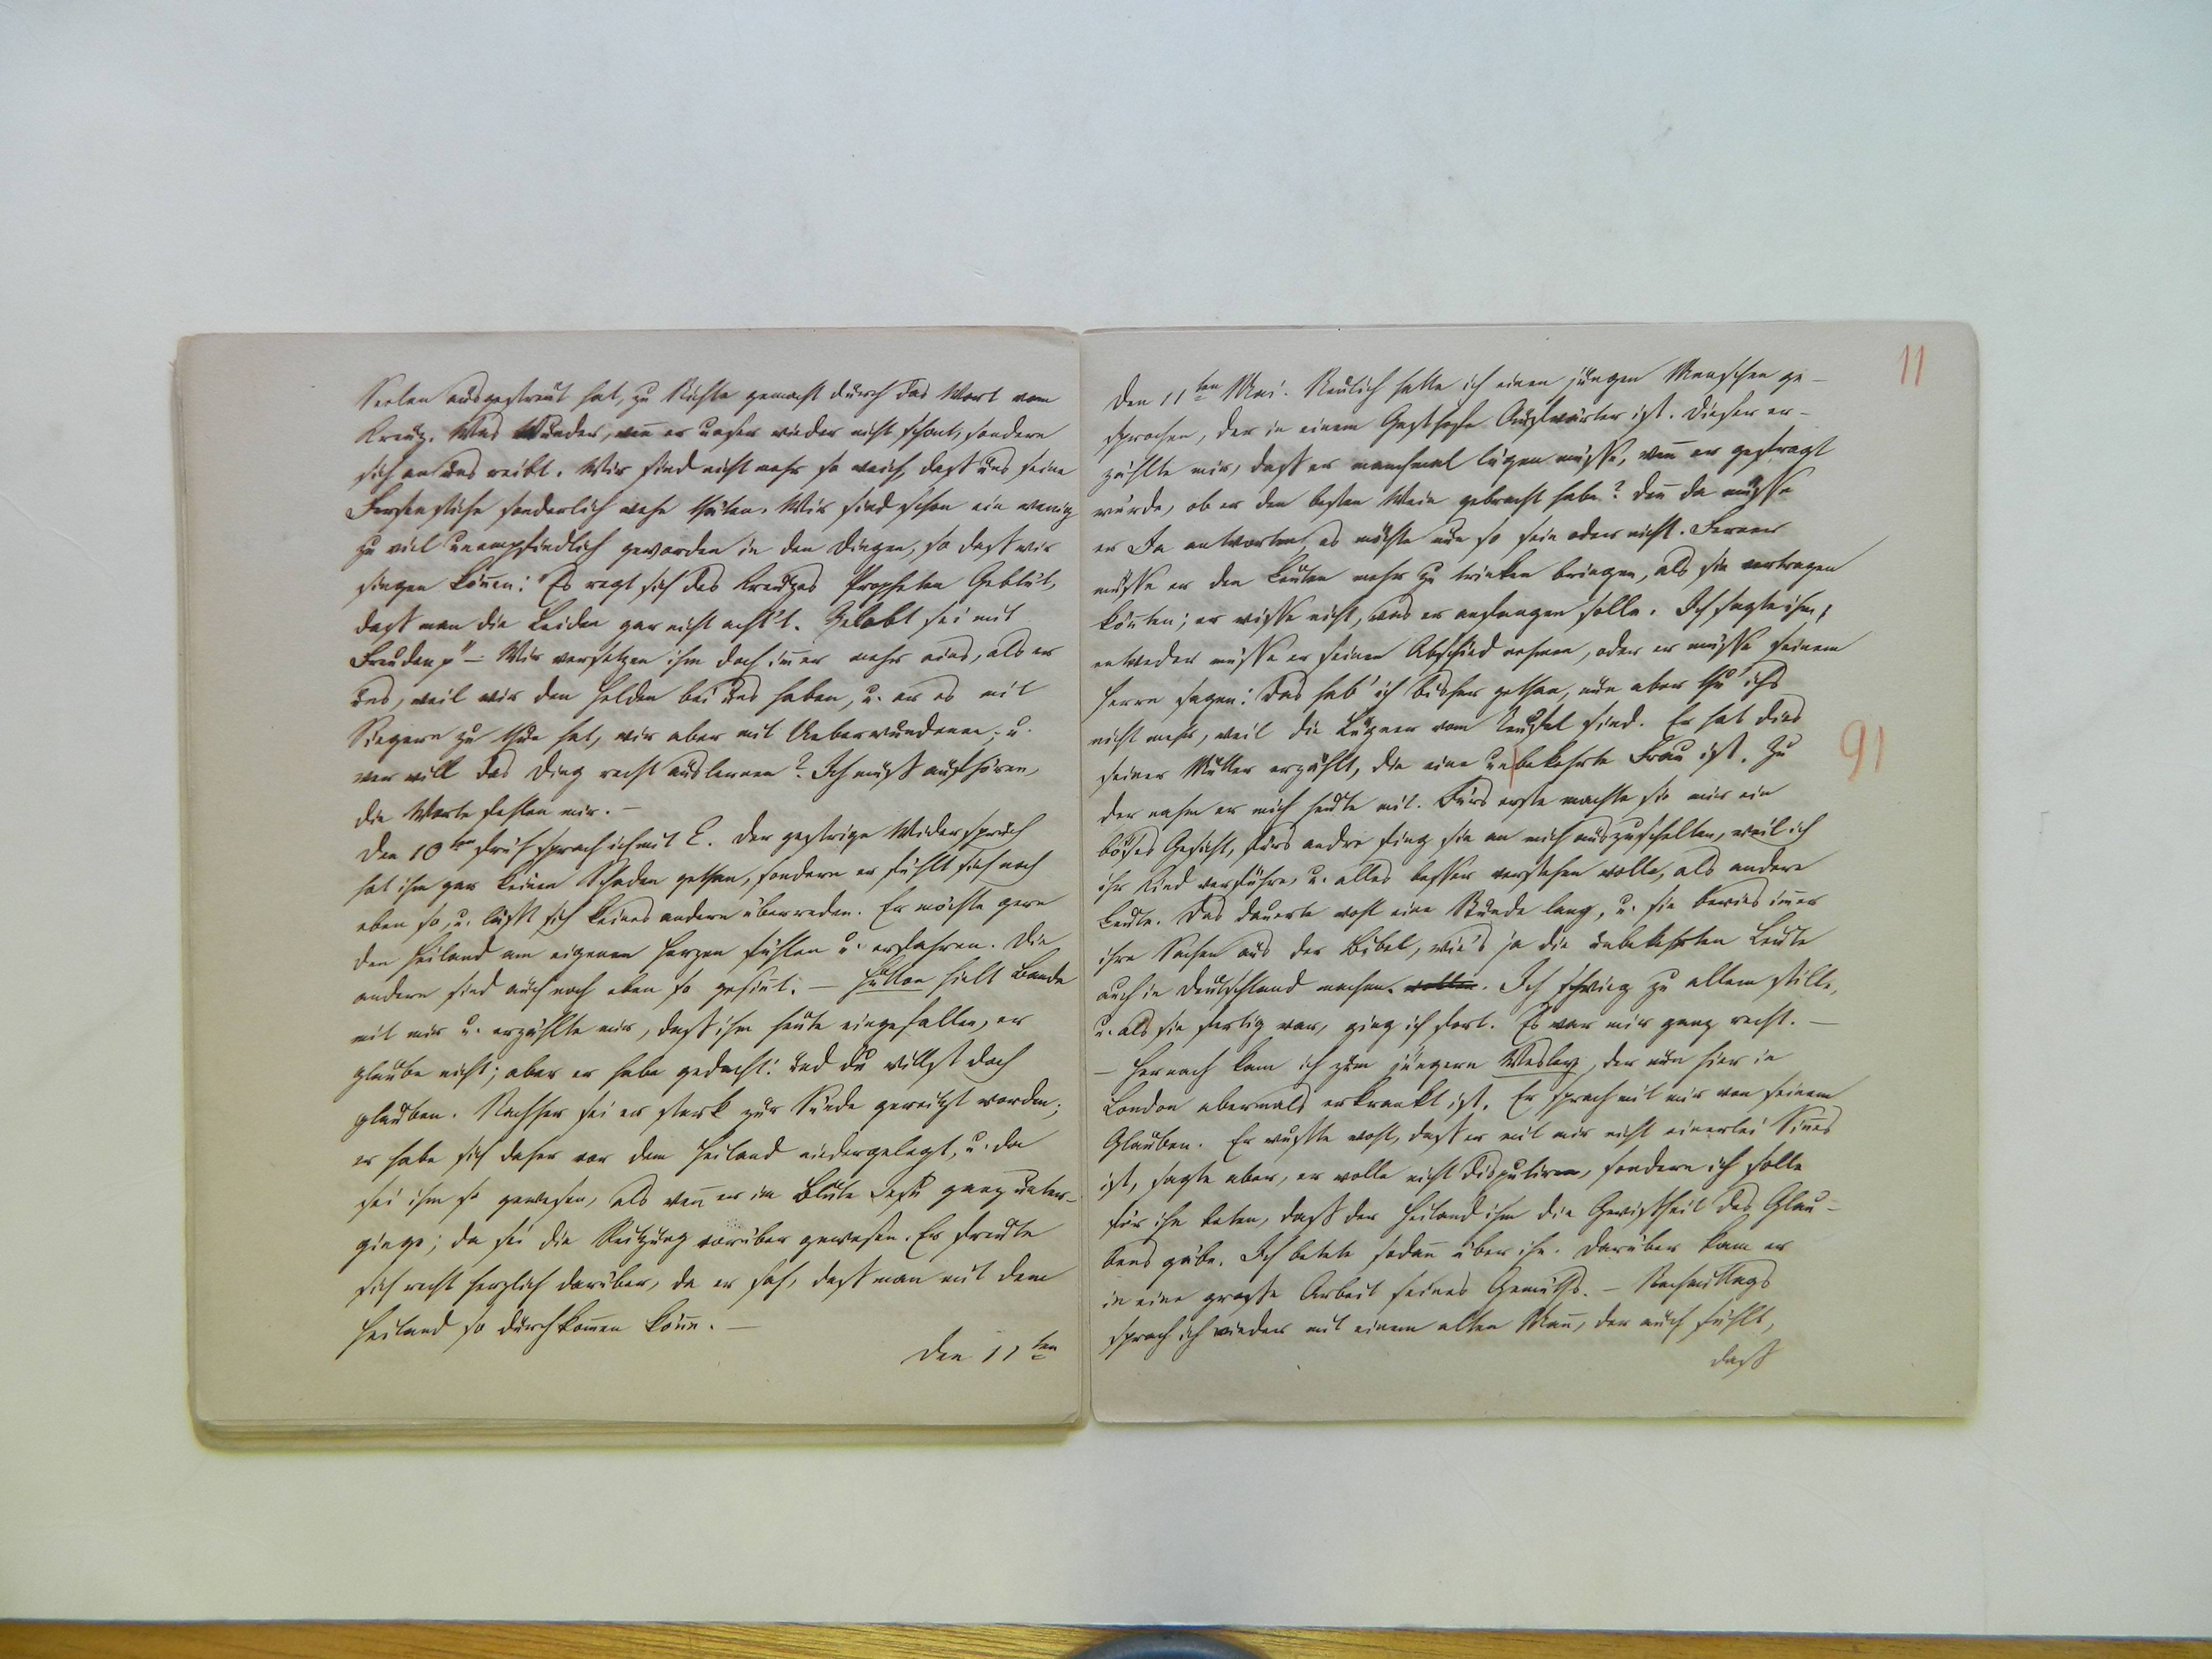 Seelen ausgestreut hat, zu Nichte gemacht durch das Wort vom
Kreuz. Was Wunder, weñ er unser wieder nicht schont, sondern
sich an uns reibt. Wir sind nicht mehr so weich, daß uns seine
Fersenstiche sonderlich wehe thäten. Wir sind schon ein wenig
zu viel unempfindlich geworden in den Dingen, so daß wir
singen köñen: "Es regt sich des Kreuzes Propheten Geblüt,
daß man die Leiden gar nicht acht't. Gelobt sei mit
Freuden p" – Wir versetzen ihm doch im̃er mehr eins, als er
uns, weil wir den Helden bei uns haben, u. er es mit
Siegern zu thun hat, wir aber mit Ueberwundenen; u.
wer will das Ding recht auslernen? Ich muß aufhören,
die Worte fehlen mir. –
Den 10ten früh sprach ich mit E. Der gestrige Widerspruch
hat ihm gar keinen Schaden gethan, sondern er fühlt sich noch
eben so, u. läßt sich keines andern überreden. Er möchte gern
den Heiland am eigenen Herzen fühlen u. erfahren. Die
andern sind auch noch eben so gesiñt. – Hutton hielt Bande
mit mir u. erzählte mir, daß ihm heute eingefallen, er
glaube nicht; aber er habe gedacht: und du willst doch
glauben. Nachher sei er stark zur Sünde gereitzt worden;
er habe sich daher vor dem Heiland niedergelegt, u. da
sei ihm so gewesen, als weñ er im Blute Jesu ganz unter-
ginge; da sei die Reitzung vorüber gewesen. Er freute
sich recht herzlich darüber, da er sah, daß man mit dem
Heiland so durchkom̃en köñe. –
Den 11ten
11
Den 11ten Mai. Neulich hatte ich einen jungen Menschen ge-
sprochen, der in einem Gasthofe Aufwärter ist. Dieser er-
zählte mir, daß er manchmal lügen müsse, weñ er gefragt
würde, ob er den besten Wein gebracht habe? deñ da müsse
er Ja antworten, es möchte nun so sein oder nicht. Ferner
müsse er den Leuten mehr zu trinken bringen, als sie vertragen
köñten; er wisse nicht, was er anfangen solle. Ich sagte ihm,
entweder müsse er seinen Abschied nehmen, oder er müsse seinem
Herrn sagen: das hab' ich bisher gethan, nun aber thu' ichs
nicht mehr, weil die Lügner vom Teufel sind. Er hat dies
seiner Mutter erzählt, die eine unbekehrte Frau ist. Zu
91
der nahm er mich heute mit. Fürs erste machte sie mir ein
böses Gesicht, fürs andre fing sie an mich auszuschelten, weil ich
ihr Kind verführe, u. alles besser verstehen wolle, als andere
Leute. Das dauerte wohl eine Stunde lang, u. sie bewies im̃er
ihre Sachen aus der Bibel, wie's ja die unbekehrten Leute
auch in Deutschland machen. Ich schwieg zu allem stille,
u. als sie fertig war, ging ich fort. Es war mir ganz recht. –
– Hernach kam ich zum jüngern Wesley, der nun hier in
London abermals erkrankt ist. Er sprach mit mir von seinem
Glauben. Er wußte wohl, daß er mit mir nicht einerlei Siñes
ist, sagte aber, er wolle nicht disputiren, sondern ich solle
für ihn beten, daß der Heiland ihm die Gewißheit des Glau-
bens gäbe. Ich betete sodañ über ihn. Darüber kam er
in eine große Arbeit seines Gemüths. – Nachmittags
sprach ich wieder mit einem alten Mañ, der auch fühlt,
daß